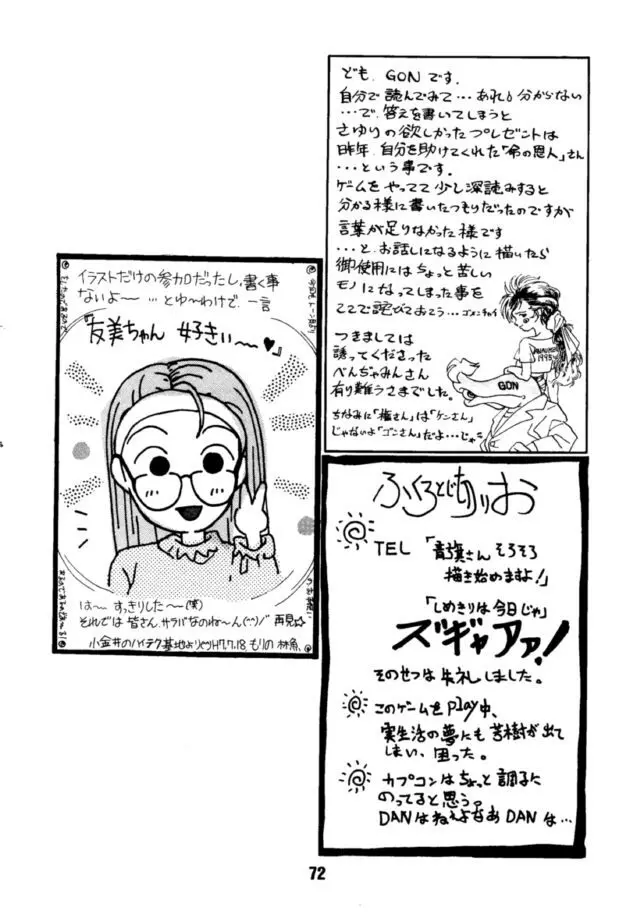 ども、GONです.
自分で読んでみて…あれ。分からない
…で、答えを書いてしまうと
さゆりの欲しかったプレゼントは
昨年、自分を助けてくれた「命の恩人」さん
…という事です。
ゲームを やってて 少し深読みすると
分かる様に書いたつもりだったのですが
言葉が足りなかった様です
…と、お話しになるように描いたら
御使用にはちょっと苦しい
モノになってしまった事を
ここで詫びておこう…ゴメンチャイ
つきましては
誘ってくださった
べんぢゃみんさん
有り難うさまでした。
ちなみに「権さん」は「ケンさん」
じゃないよ「ゴンさん」だよ…じゃ
1995
GON
イラストだけの参加だったし、書く事
ないよ〜 …とゆ〜わけで、一言
『友美ちゃん 好きぃ〜〜♥』
は〜 すっきりした〜(笑)
それでは皆さん、サラバなのね〜ん(^^)ﾉﾞ 再見☆
小金井のハイテク基地よりH7.7.18 もりの 林魚
ふくろとじきりお
TEL 「青旗さん そろそろ
描き始めますよ!」
「しめきりは今日じゃ」
ズギャアァ!
そのせつは失礼しました。
このゲームをplay中、
実生活の夢にも 苦樹が出て
しまい、困った。
カプコンはちょっと調子に
のってると思う。
DANはねえよなあ DANは…
72